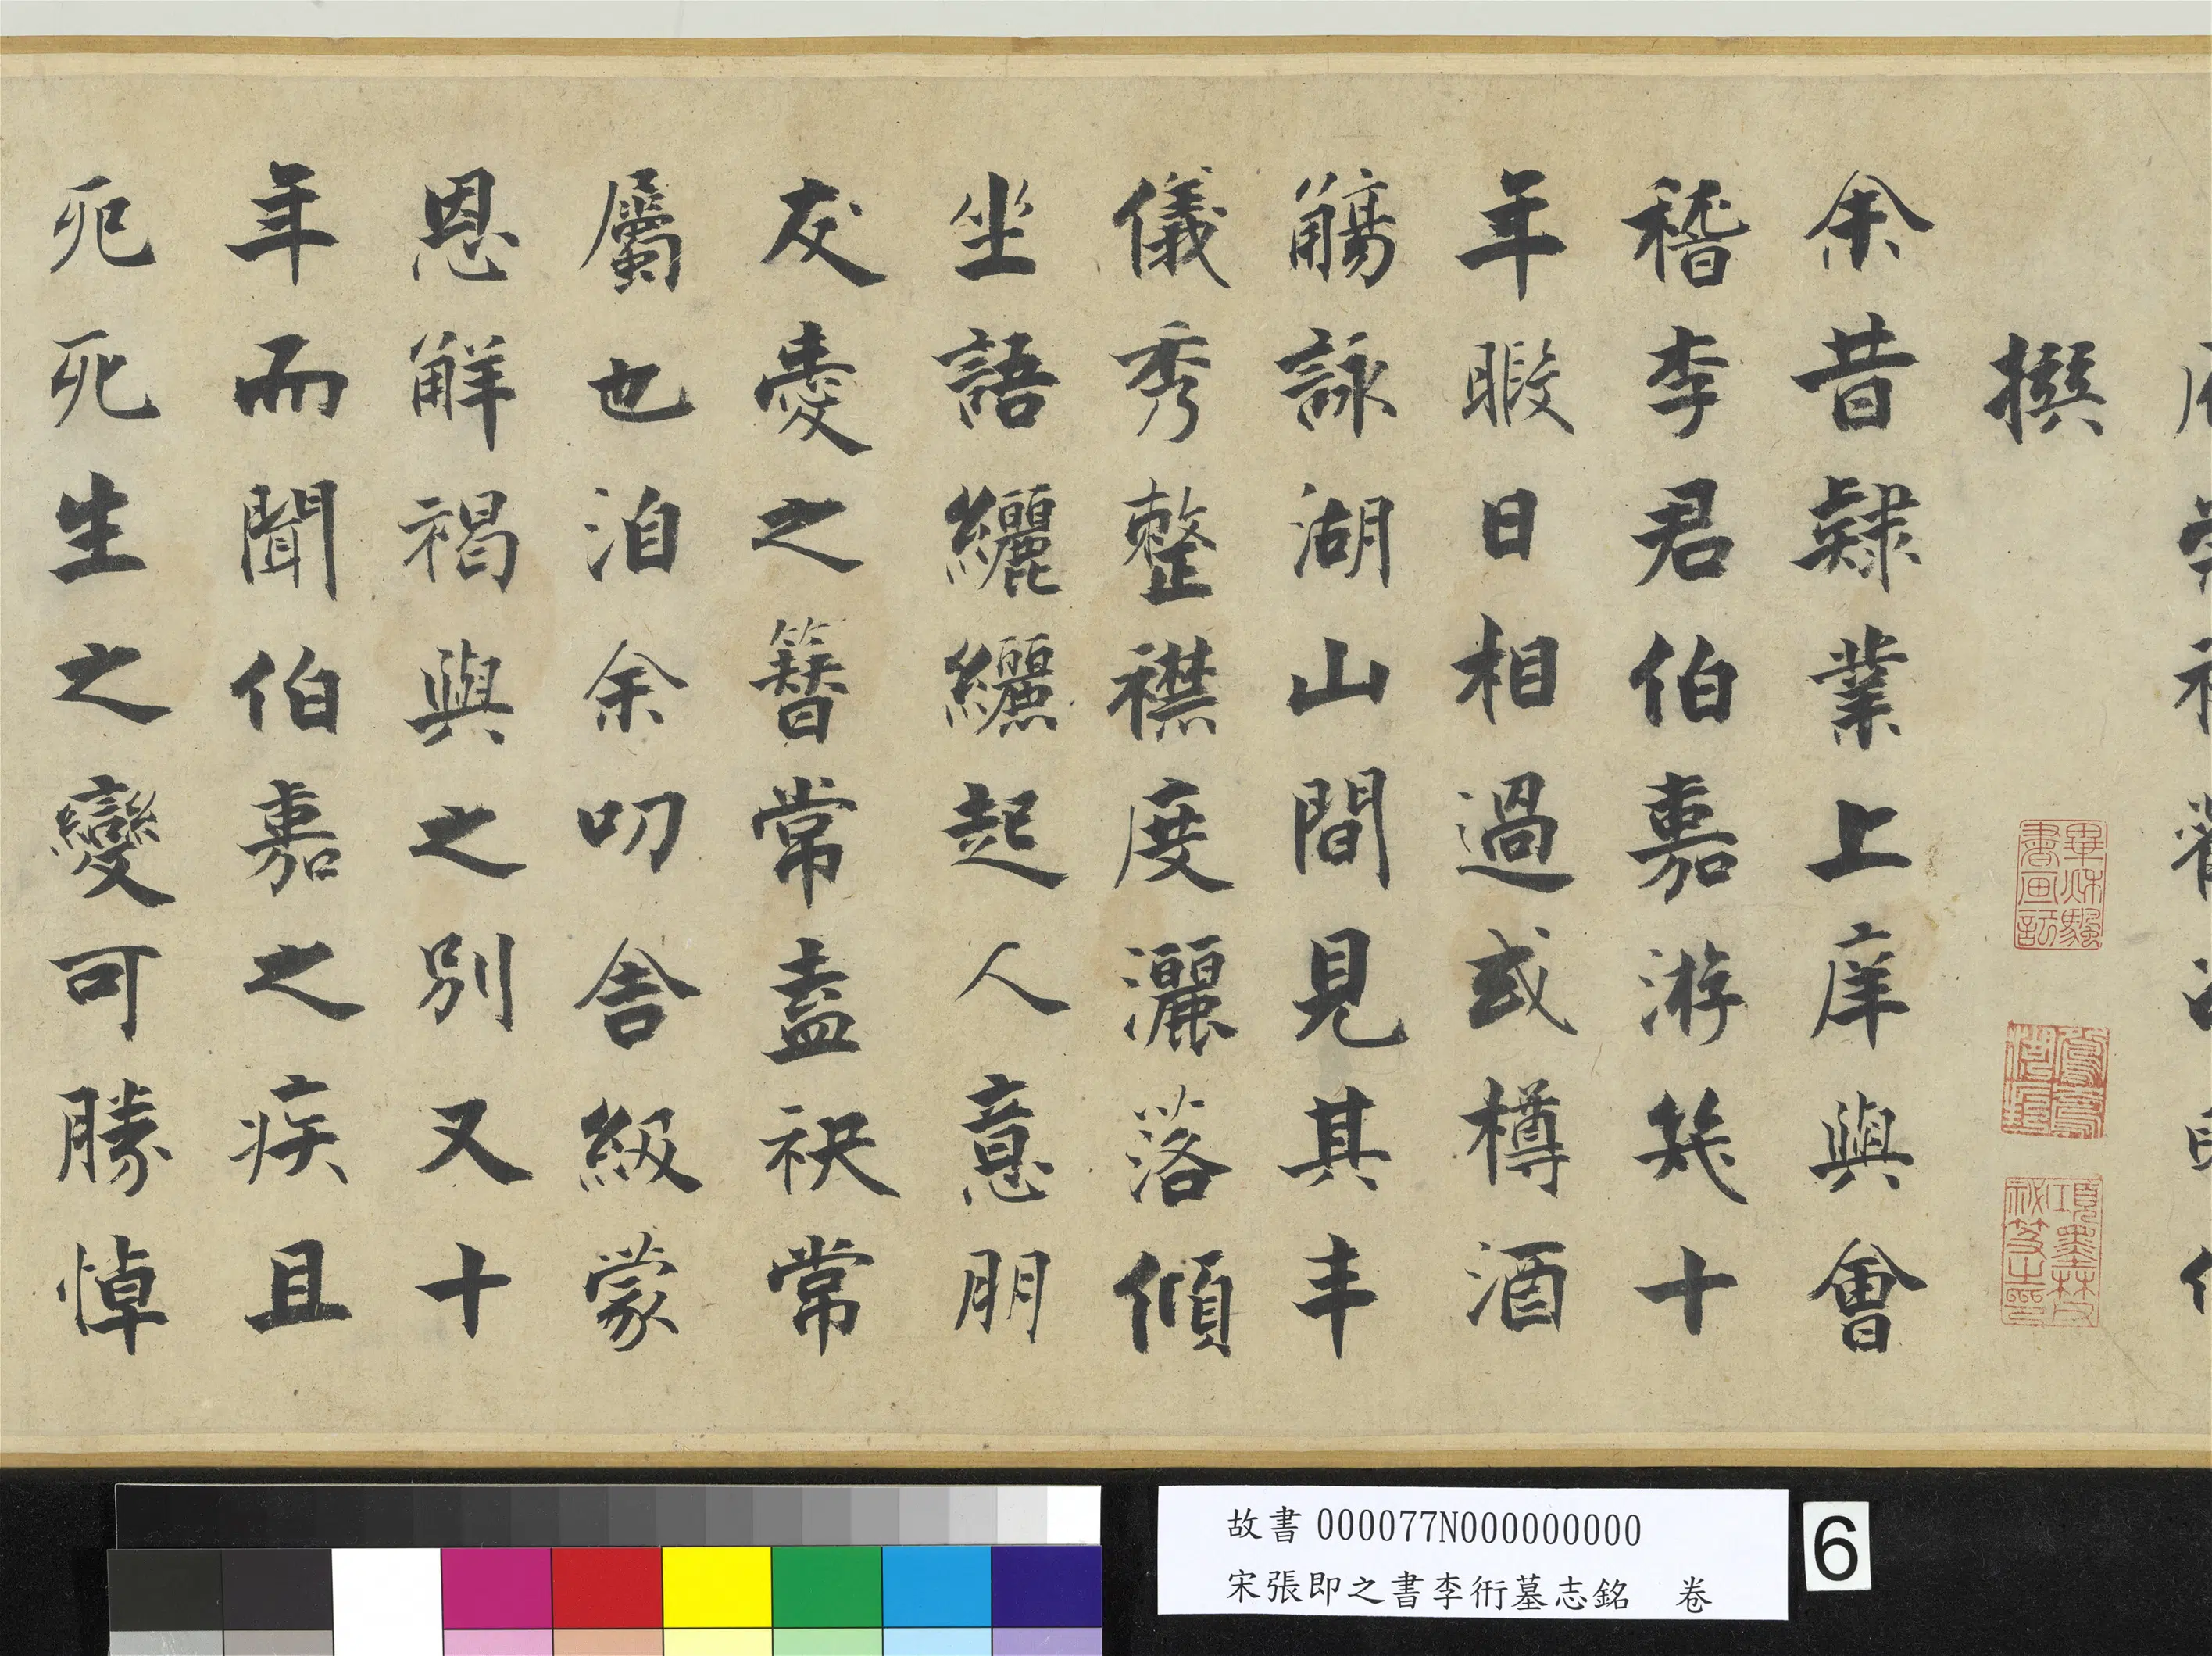 撰
余昔隸業上庠與會
稽李君伯嘉游幾十
年暇日相過或樽酒
觴詠湖山間見其丰
儀秀整襟度灑落傾
坐語纚纚起人意朋
友愛之簪常盍袂常
屬也洎余叨舍級蒙
恩解褐與之別又十
年而聞伯嘉之疾且
死死生之變可勝悼
故書000077N000000000
宋張即之書李衎墓志銘　卷
6